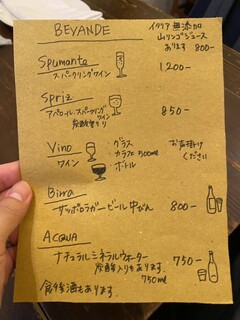 BEYANDE
イタリア 無添加
山リンゴジュース
あります 800-
Spumante
スパークリングワイン
1200-
Spriz
アペロール、スパークリングワイン
炭酸割り
850-
Vino
ワイン
グラス
カラフェ 500ml
ボトル
お声掛け
ください
Birra
サッポロラガービール 中びん 800-
ACQUA
ナチュラルミネラルウォーター 750-
炭酸入りもあります。
750ml
食後酒もあります。